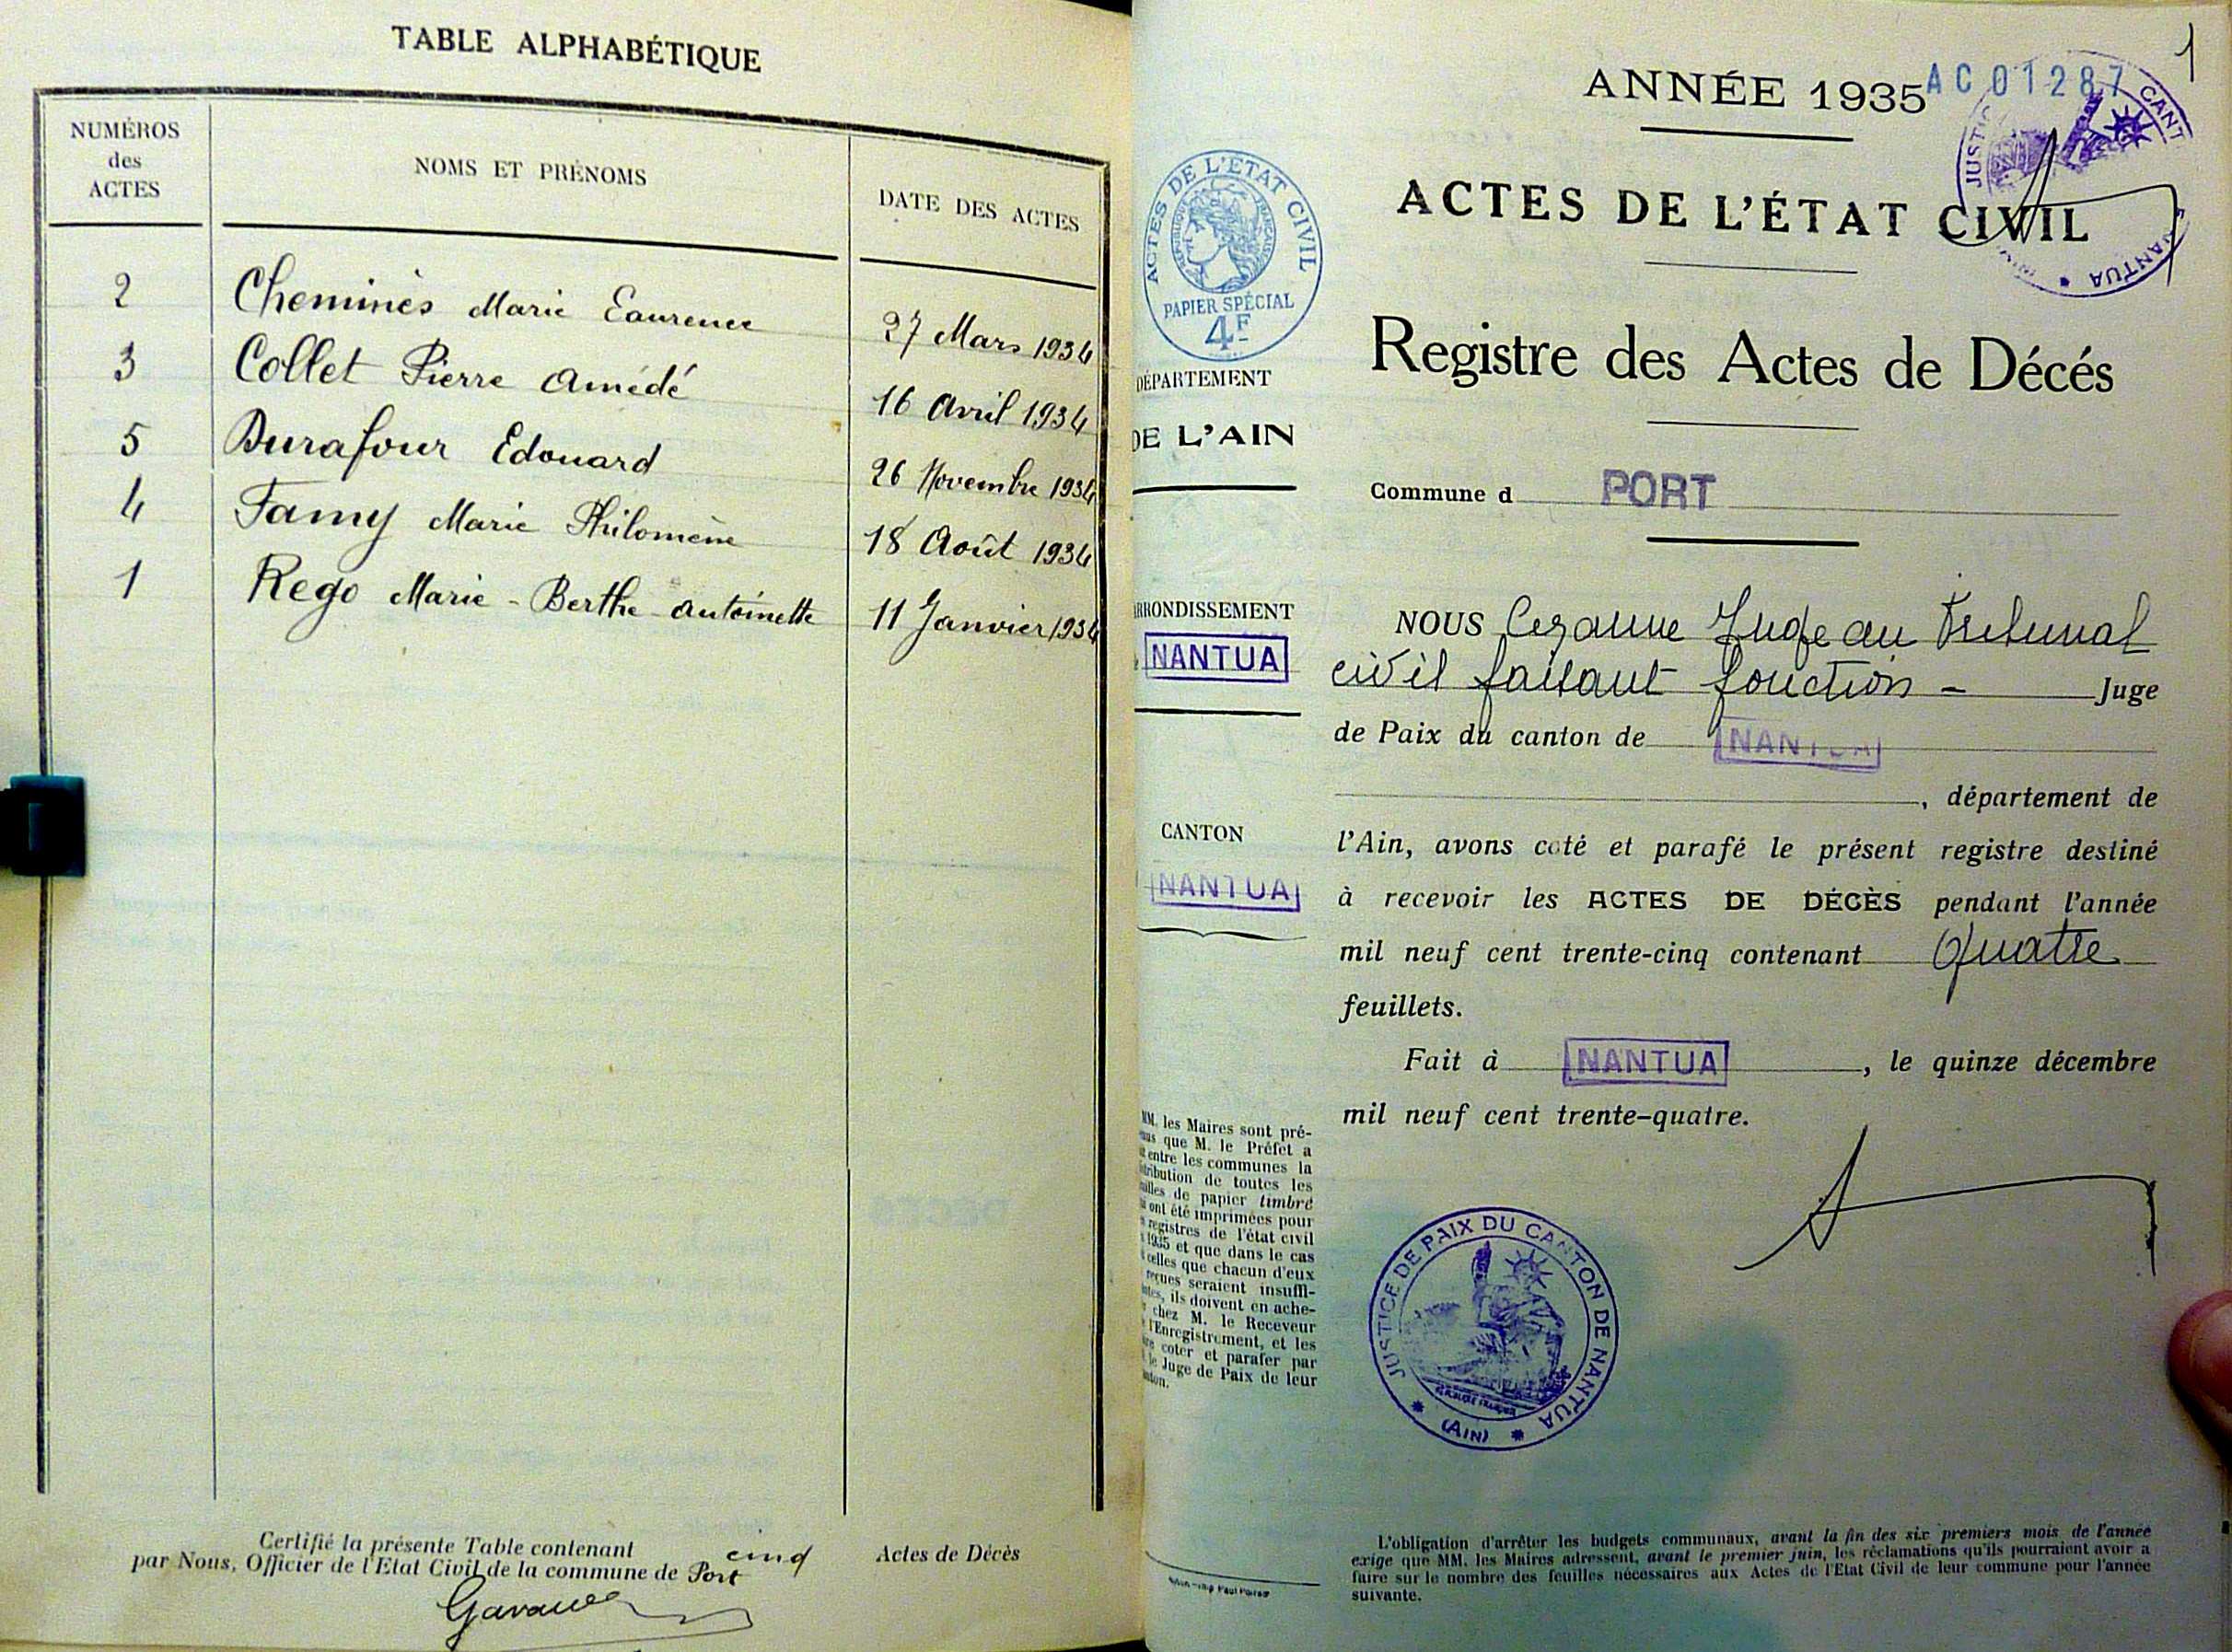 TABLE ALPHABÉTIQUE
NUMÉROS
des
ACTES
NOMS ET PRÉNOMS
DATE DES ACTES
2 Cheminés Marie Laurence 27 Mars 1934
3 Collet Pierre Amédé 16 Avril 1934
5 Durafour Edouard 26 Novembre 1934
4 Famy Marie Philomène 18 Août 1934
1 Rego Marie-Berthe-Antoinette 11 Janvier 1934
Certifié la présente Table contenant cinq Actes de Décès
par Nous, Officier de l'Etat Civil de la commune de Port
1
ANNÉE 1935
AC01287
JUSTIC CANT
NANTUA
ACTES DE L'ÉTAT CIVIL
RÉPUBLIQUE FRANÇAISE
PAPIER SPÉCIAL
4F
ACTES DE L'ÉTAT CIVIL
Registre des Actes de Décés
DÉPARTEMENT
DE L'AIN
Commune d PORT
ARRONDISSEMENT
NANTUA
CANTON
NANTUA
NOUS Cezanne Juge au Tribunal
civil faisant fonction - Juge
de Paix du canton de NANTUA
, département de
l'Ain, avons coté et parafé le présent registre destiné
à recevoir les ACTES DE DÉCÈS pendant l'année
mil neuf cent trente-cinq contenant Quatre
feuillets.
Fait à NANTUA, le quinze décembre
mil neuf cent trente-quatre.
MM. les Maires sont pré-
que M. le Préfet a
entre les communes la
de toutes les
de papier timbré
ont été imprimées pour
registres de l'état civil
1935 et que dans le cas
celles que chacun d'eux
reçues seraient insuffi-
ils doivent en ache-
chez M. le Receveur
l'Enregistrement, et les
coter et parafer par
le Juge de Paix de leur
JUSTICE DE PAIX DU CANTON DE NANTUA
(AIN)
L'obligation d'arrêter les budgets communaux, avant la fin des six premiers mois de l'année
exige que MM. les Maires adressent, avant le premier juin, les réclamations qu'ils pourraient avoir a
faire sur le nombre des feuilles nécessaires aux Actes de l'Etat Civil de leur commune pour l'année
suivante.